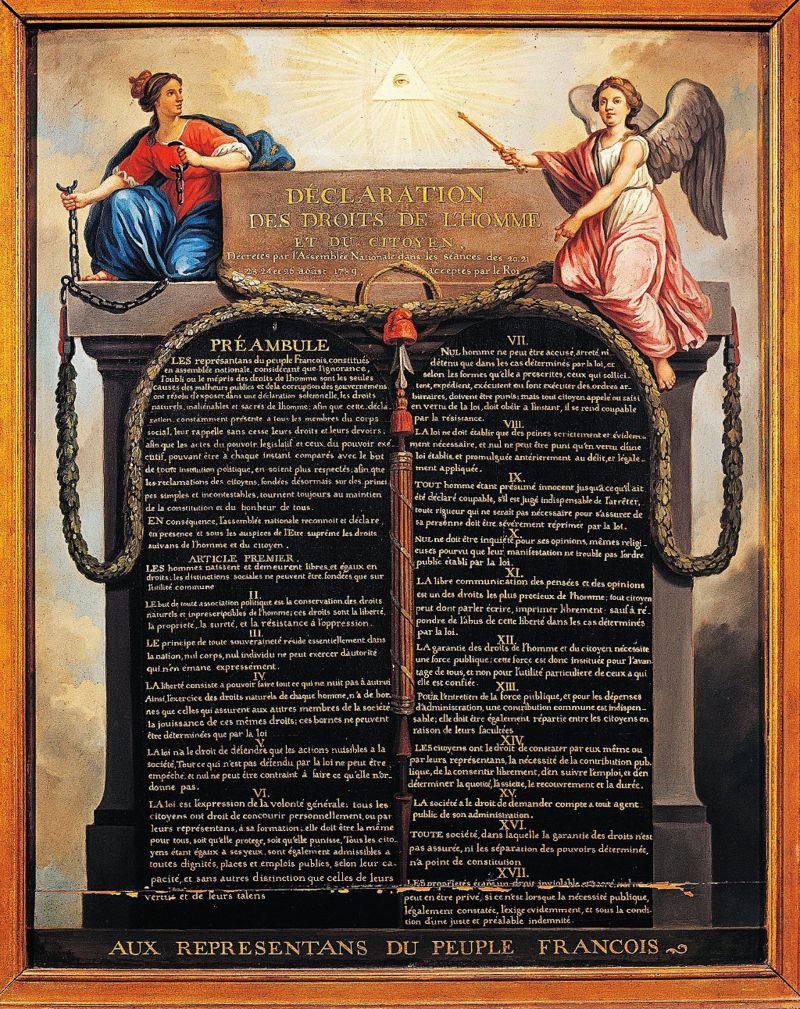 DÉCLARATION
DES DROITS DE L'HOMME
ET DU CITOYEN,
Décretés par l'Assemblée Nationale dans les séances des 20. 21
23. 24 et 26 aoûst 1789, acceptés par le Roi
PRÉAMBULE
LES représantans du peuple François, constitués
en assemblée nationale, considérant que l'ignorance,
l'oubli ou le mépris des droits de l'homme sont les seules
causes des malheurs publics et de la corruption des gouvernemens
ont résolu d'exposer, dans une déclaration solemnelle, les droits
naturels, inaliénables et sacrés de l'homme; afin que cette, décla-
ration, constamment présente a tous les membres du corps
social, leur rappelle sans cesse leurs droits et leurs devoirs;
afin que les actes du pouvoir legislatif et ceux du pouvoir exé-
cutif, pouvant être à chaque instant comparés avec le but
de toute institution politique, en soient plus respectés; afin que
les reclamations des citoyens, fondées désormais sur des princi-
pes simples et incontestables, tournent toujours au maintien
de la constitution et du bonheur de tous.
EN conséquence, l'assemblée nationale reconnoit et déclare,
en presence et sous les auspices de l'Etre suprême les droits
suivans de l'homme et du citoyen.
ARTICLE PREMIER.
LES hommes naissent et demeurent libres, et égaux en
droits; les distinctions sociales ne peuvent être fondées que sur
l'utilité commune
II.
LE but de toute association politique est la conservation des droits
naturels et imprescriptibles de l'homme; ces droits sont la liberté,
la proprieté, la sureté, et la résistance à l'oppression.
III.
LE principe de toute souveraineté réside essentiellement dans
la nation, nul corps, nul individu ne peut exercer d'autorité
qui n'en émane expressément.
IV.
LA liberté consiste a pouvoir faire tout ce qui ne nuit pas à autrui
Ainsi, l'exercice des droits naturels de chaque homme, n'a de bor-
nes que celles qui assurent aux autres membres de la société
la jouissance de ces mêmes droits; ces bornes ne peuvent
être déterminées que par la loi
V.
LA loi n'a le droit de défendre que les actions nuisibles a la
société, Tout ce qui n'est pas défendu par la loi ne peut être
empêché. et nul ne peut être contraint à faire ce qu'elle n'or-
donne pas.
VI.
LA loi est l'expression de la volonté générale; tous les
citoyens ont droit de concourir personnellement, ou par
leurs représentans, à sa formation; elle doit être la même
pour tous, soit qu'elle protege, soit qu'elle punisse, Tous les cito-
yens étant égaux à ses yeux, sont également admissibles a
toutes dignités, places et emplois publics, selon leur ca-
pacité, et sans autres distinction que celles de leurs
vertus et de leurs talens
VII.
NUL homme ne peut être accusé, areté ni
détenu que dans les cas déterminés par la loi, et
selon les formes qu'elle a prescrites, ceux qui sollici-
tent, expédient, exécutent ou font exécuter des ordres ar-
bitraires, doivent être punis; mais tout citoyen appelé ou saisi
en vertu de la loi, doit obéir a l'instant, il se rend coupable
par la résistance.
VIII.
LA loi ne doit établir que des peines strictement et évidem-
ment nécessaire, et nul ne peut être puni qu'en vertu d'une
loi établie et promulguée antérierement au délit, et légale-
ment appliquée.
IX.
TOUT homme étant présumé innocent jusqu'à ce qu'il ait
été déclaré coupable, s'il est jugé indispensable de l'arrêter,
toute rigueur qui ne serait pas nécessaire pour s'assurer de
sa personne doit être sévèrement réprimée par la loi.
X.
NUL ne doit être inquiété pour ses opinions, mêmes religi-
euses pourvu que leur manifestation ne trouble pas l'ordre
public établi par la loi.
XI.
LA libre communication des pensées et des opinions
est un des droits les plus precieux de l'homme; tout citoyen
peut dont parler écrire, imprimer librement: sauf à ré-
pondre de l'abus de cette liberté dans les cas déterminés
par la loi.
XII.
LA garantie des droits de l'homme et du citoyen nécessite
une force publique; cette force est donc instituée pour l'avan-
tage de tous, et non pour l'utilité particuliere de ceux a qui
elle est confiée.
XIII.
POUR l'entretien de la force publique, et pour les dépenses
d'administration, une contribution commune est indispen-
sable; elle doit être également répartie entre les citoyens en
raison de leurs facultées
XIV.
LES citoyens ont le droit de constater par eux même ou
par leurs représentans, la nécessité de la contribution pub-
lique, de la consentir librement, d'en suivre l'emploi, et d'en
déterminer la quotité, l'assiette, le recouvrement et la durée.
XV.
LA société a le droit de demander compte a tout agent
public de son administration.
XVI.
TOUTE société, dans laquelle la garantie des droits n'est
pas assurée, ni les séparation des pouvoirs déterminée,
n'a point de constitution
XVII.
LES propriétés étant un droit inviolable et sacré, nul ne
peut en être privé, si ce n'est lorsque la nécessité publique,
légalement constatée, l'exige evidemment, et sous la condi-
tion d'une juste et préalable indemnité.
AUX REPRESENTANS DU PEUPLE FRANCOIS